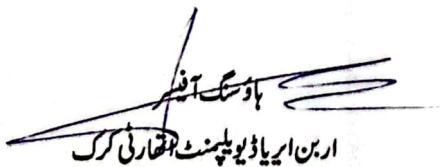 ہاؤسنگ آفیسر
اربن ایریا ڈیویلپمنٹ اتھارٹی کرک